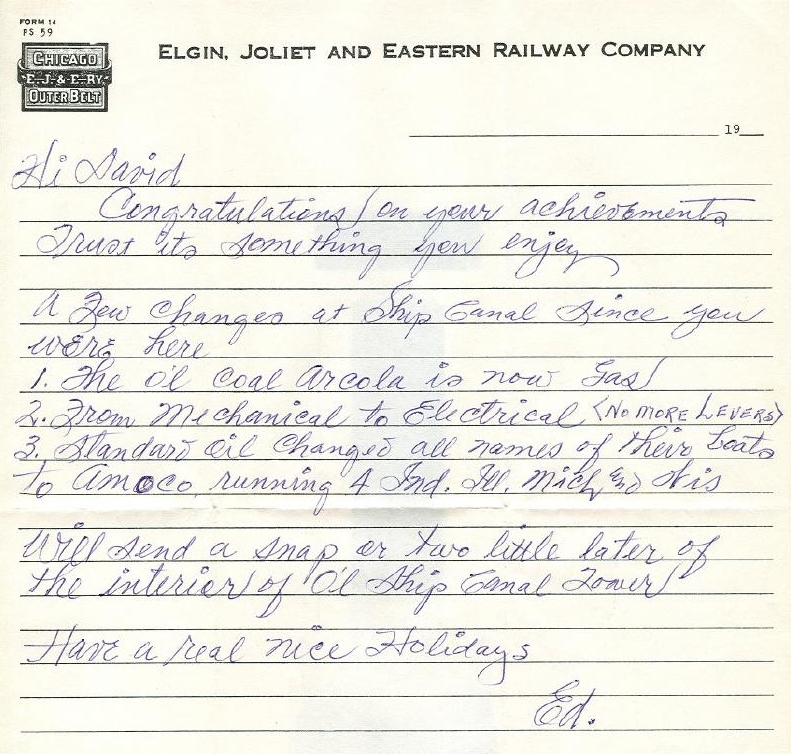 FORM 14
PS 59
CHICAGO
E.J.&E.RY.
OUTER BELT
ELGIN, JOLIET AND EASTERN RAILWAY COMPANY
19
Hi David
Congratulations on your achievements
Trust its something you enjoy
A Few changes at Ship Canal since you
were here
1. The o'l coal Arcola is now Gas
2. From Mechanical to Electrical (NO MORE LEVERS)
3. Standard Oil changed all names of their boats
to Amoco running 4 Ind. Ill. Mich and Wis
Will send a snap or two little later of
the interior of O'l Ship Canal Tower
Have a real nice Holidays
Ed.